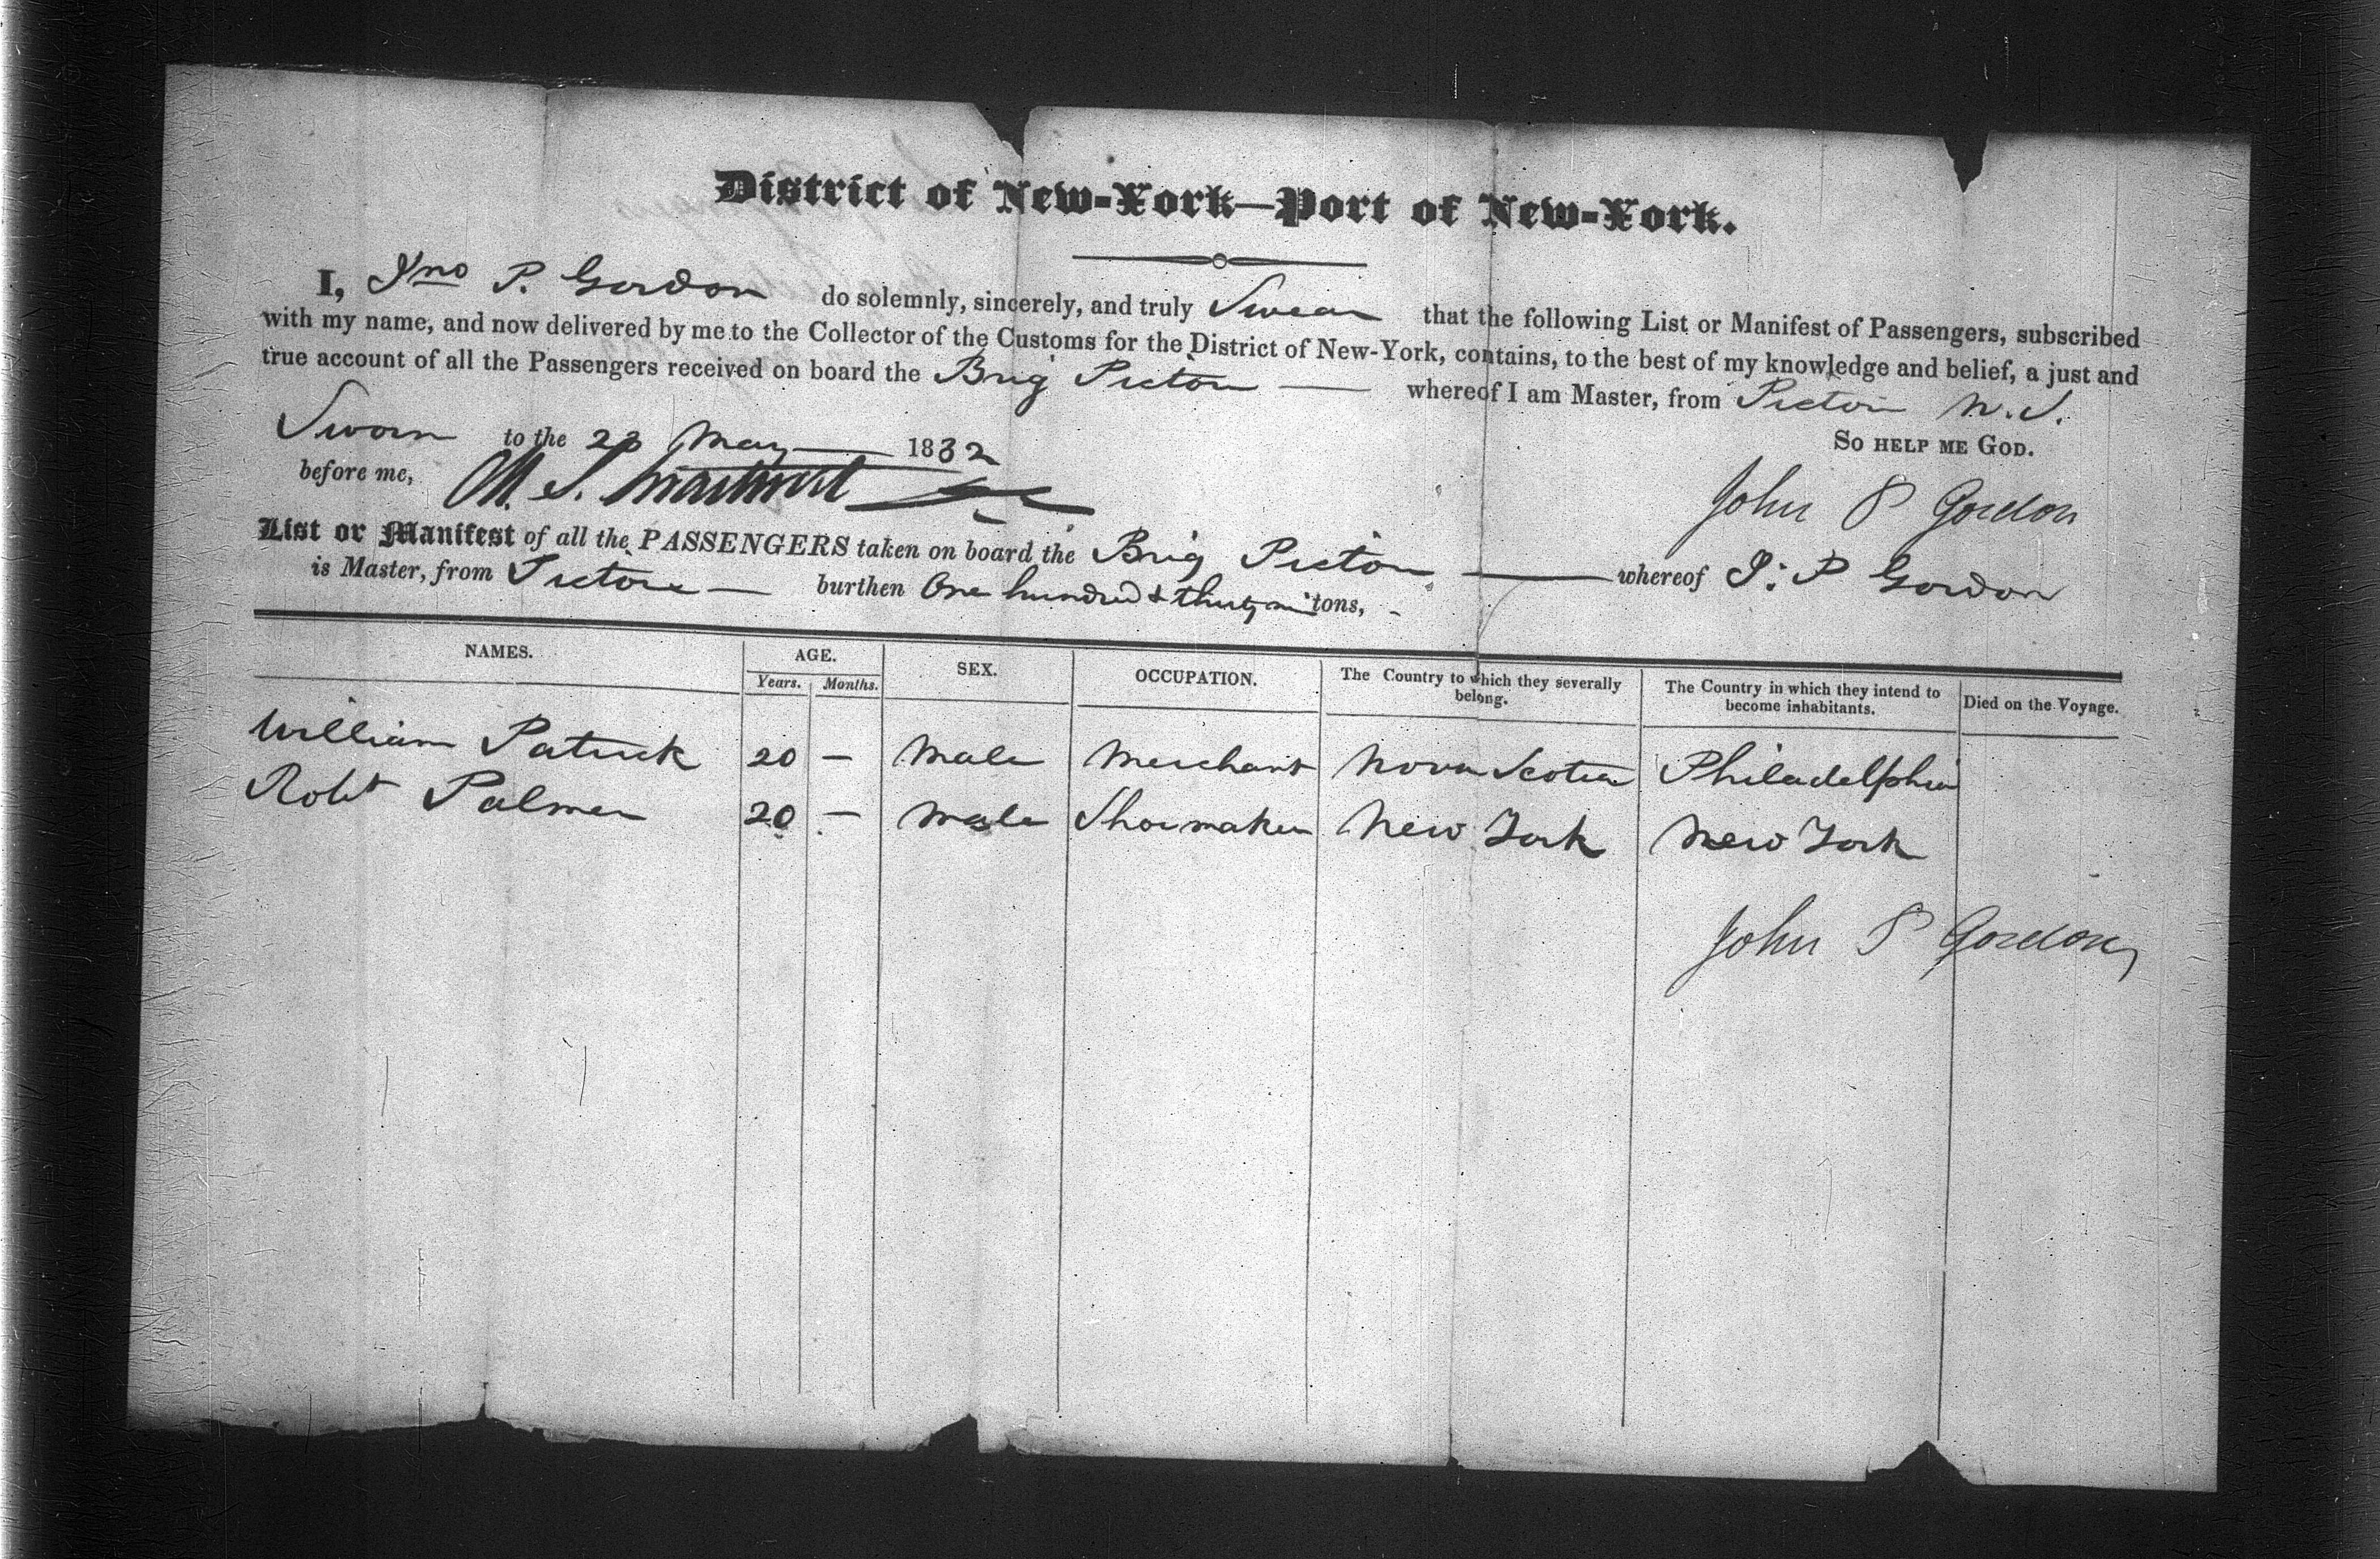 District of New-York—Port of New-York.
I, Jno P. Gordon do solemnly, sincerely, and truly Swear that the following List or Manifest of Passengers, subscribed
with my name, and now delivered by me to the Collector of the Customs for the District of New-York, contains, to the best of my knowledge and belief, a just and
true account of all the Passengers received on board the Brig Pictou — whereof I am Master, from Pictou N.S.
So HELP ME GOD.
Sworn to the 23 May — 1832
before me,
John P Gordon
List or Manifest of all the PASSENGERS taken on board the Brig Pictou — whereof J. P Gordon
is Master, from Pictou — burthen One hundred & thirty tons,
NAMES. AGE. SEX. OCCUPATION. The Country to which they severally belong. The Country in which they intend to become inhabitants. Died on the Voyage.
Years. Months.
William Patrick 20 — Male Merchant Nova Scotia Philadelphia
Robt Palmer 20 — Male Shoemaker New York New York
John P Gordon